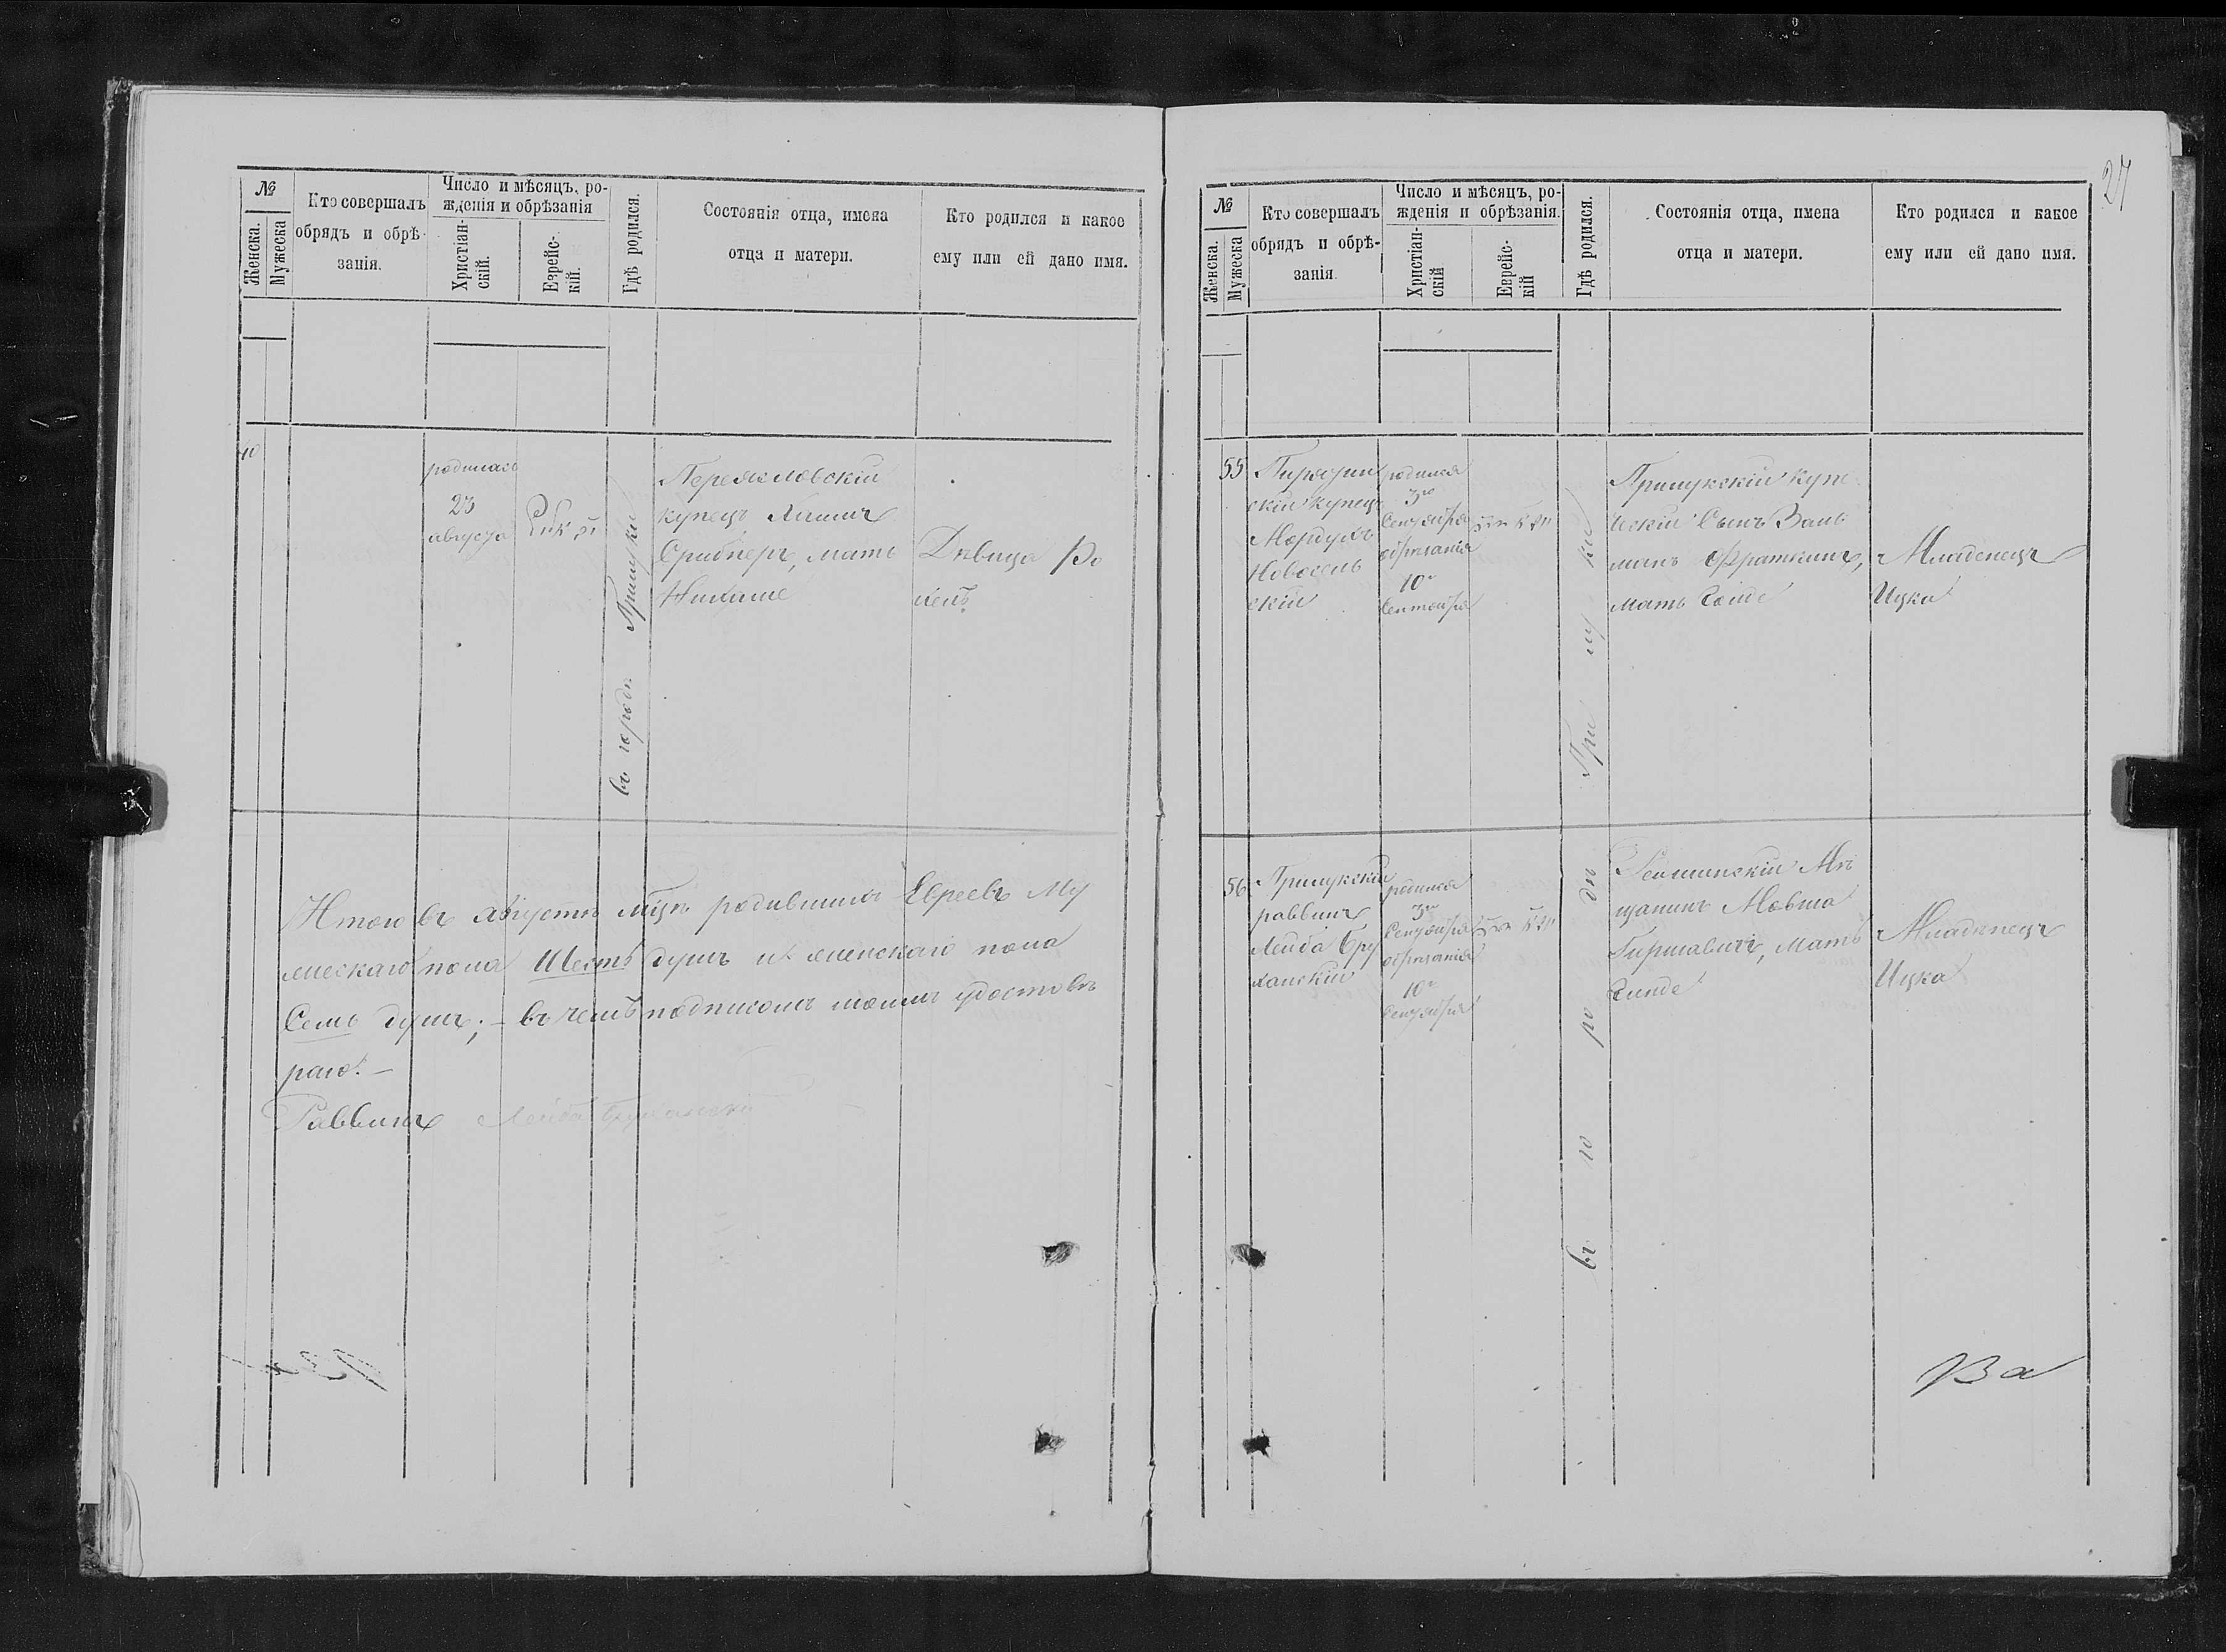 №
Женска.
Мужеска
Кто совершалъ
обрядъ и обрѣ-
занія.
Число и мѣсяцъ, ро-
жденія и обрѣзанія
Христіан-
скій.
Еврейс-
кій.
Гдѣ родился.
Состоянія отца, имена
отца и матери.
Кто родился и какое
ему или ей дано имя.
40
родилась
23
августа
въ городѣ Прилуки
Переяславскій
купецъ
мать
Дѣвица Ро
хель
Итого въ августѣ мцѣ родившихся Евреевъ му
жескаго пола Шесть душъ и женскаго пола
Семь душъ; – въ чемъ подписомъ моимъ удостовѣ
раю. –
Раввинъ Лейба Бруханскій
27
№
Женска.
Мужеска
Кто совершалъ
обрядъ и обрѣ-
занія.
Число и мѣсяцъ, ро-
жденія и обрѣзанія.
Христіан-
скій
Еврейс-
кій
Гдѣ родился.
Состоянія отца, имена
отца и матери.
Кто родился и какое
ему или ей дано имя.
55
Пирятин
скій купецъ
Мордухъ
Новосель
скій
родился
3го
Сентября
обрѣзанія
10го
Сентября
въ го ро дѣ При лу ки
Прилукскій купе
ческій сынъ Заль
манъ Фраткинъ,
мать
Младенецъ
Ицка
56
Прилукскій
раввинъ
Лейба Бру
ханскій
родился
3го
Сентября
обрѣзанія
10го
Сентября
Мѣ
щанинъ Мовша
Гиршавичъ, мать
Младенецъ
Ицка
Ва